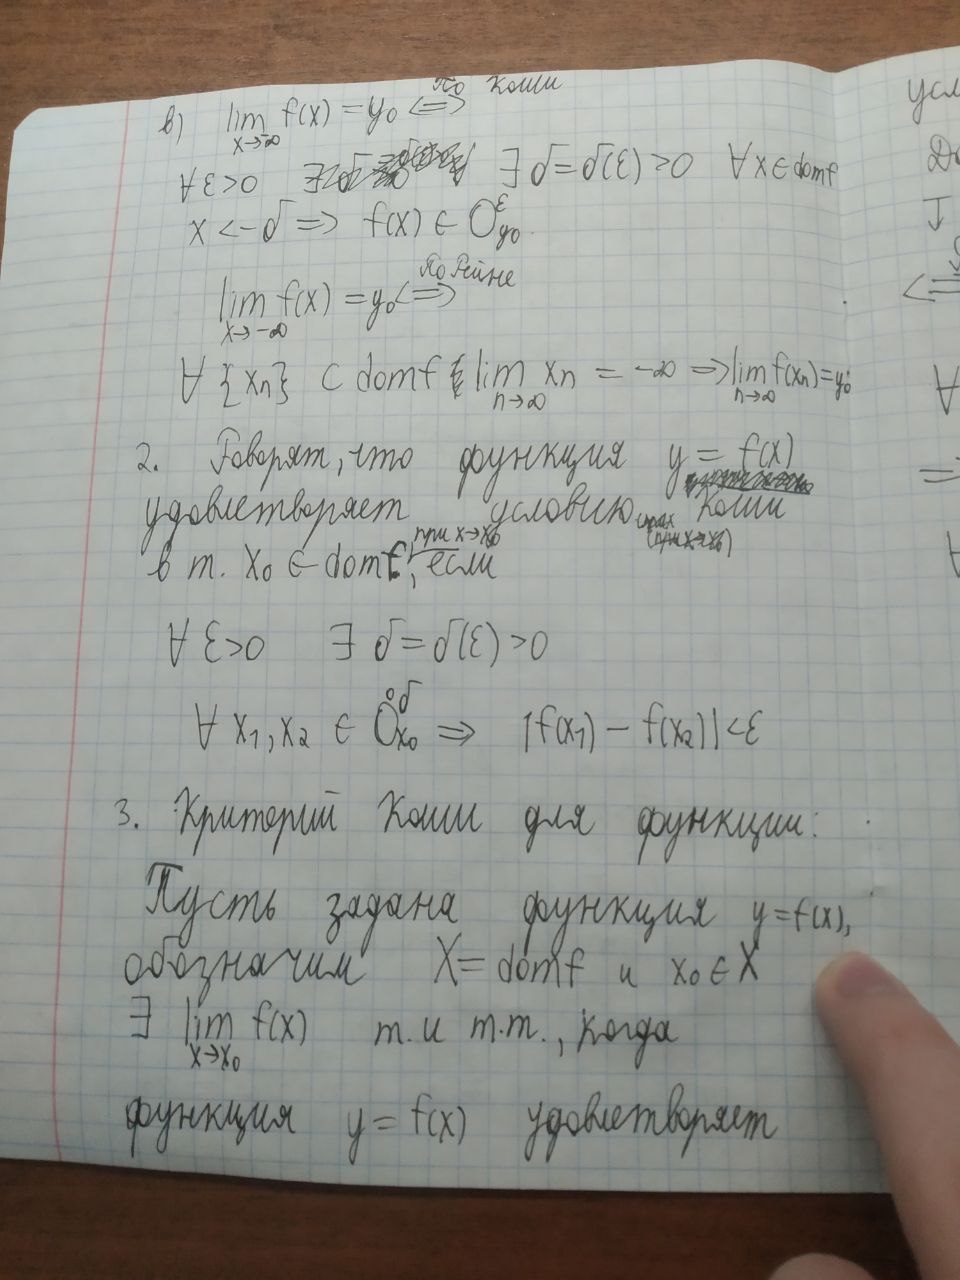 в) lim f(x) = y₀ <=> По Коши
x→-∞
∀ ε>0 ∃ δ=δ(ε)>0 ∀x∈domf
x <-δ => f(x) ∈ O^ε_y₀
lim f(x) = y₀ <=> По Гейне
x→-∞
∀ {xn} ⊂ domf lim xn = -∞ => lim f(xn)=y₀
n→∞ n→∞
2. Говорят, что функция y = f(x)
удовлетворяет условию Коши
в т. x₀ ∈ domf, при x→x₀ если
∀ ε>0 ∃ δ=δ(ε)>0
∀ x₁,x₂ ∈ O̊^δ_x₀ => |f(x₁) - f(x₂)|<ε
3. Критерий Коши для функции:
Пусть задана функция y=f(x),
обозначим X= domf и x₀∈X
∃ lim f(x) т. и т.т., когда
x→x₀
функция y= f(x) удовлетворяет